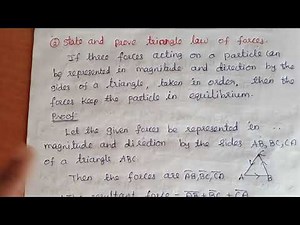 ② State and prove triangle law of forces.
If three forces acting on a particle can
be represented in magnitude and direction by the
sides of a triangle, taken in order, then the
forces keep the particle in equilibrium.
Proof:
Let the given forces be represented in
magnitude and direction by the sides AB, BC, CA
of a triangle ABC.
Then the forces are AB, BC, CA
C
A B
resultant force = AB + BC + CA